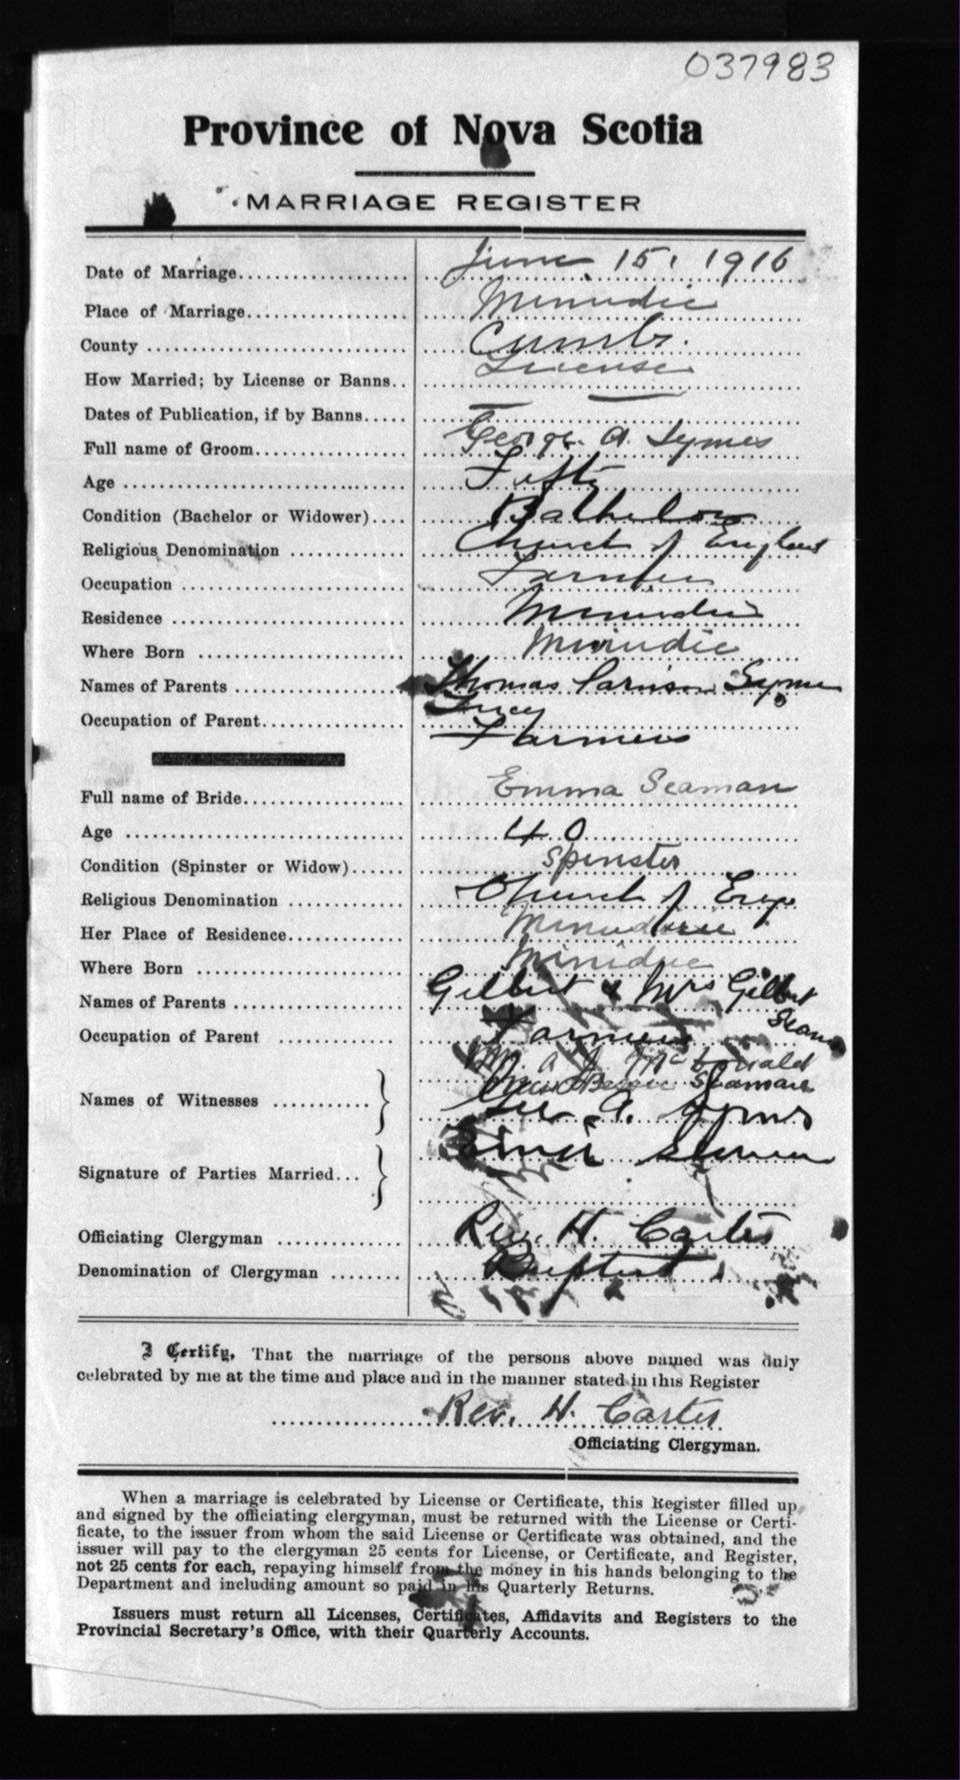 037983
Province of Nova Scotia
MARRIAGE REGISTER
Date of Marriage June 15, 1916
Place of Marriage Minudie
County Cumb.
How Married; by License or Banns.. License
Dates of Publication, if by Banns —
Full name of Groom George A. Symes
Age Fifty
Condition (Bachelor or Widower) Bathelor
Religious Denomination Church of England
Occupation Farmer
Residence Minudie
Where Born Minudie
Names of Parents Thomas Symes
Lucy
Occupation of Parent Farmers
Full name of Bride Emma Seaman
Age 40
Condition (Spinster or Widow) Spinster
Religious Denomination Church of Eng
Her Place of Residence Minudie
Where Born Minidie
Names of Parents Gilbert & Mrs Gilbert
Seaman
Occupation of Parent Farmers
A. J. McDonald
Names of Witnesses Seaman
Geo. A. Symes
Signature of Parties Married Seaman
Officiating Clergyman Rev. H. Carter
Denomination of Clergyman Baptist
I Certify, That the marriage of the persons above named was duly
celebrated by me at the time and place and in the manner stated in this Register
Rev. H. Carter
Officiating Clergyman.
When a marriage is celebrated by License or Certificate, this Register filled up
and signed by the officiating clergyman, must be returned with the License or Certi-
ficate, to the issuer from whom the said License or Certificate was obtained, and the
issuer will pay to the clergyman 25 cents for License, or Certificate, and Register,
not 25 cents for each, repaying himself from the money in his hands belonging to the
Department and including amount so paid in his Quarterly Returns.
Issuers must return all Licenses, Certificates, Affidavits and Registers to the
Provincial Secretary's Office, with their Quarterly Accounts.